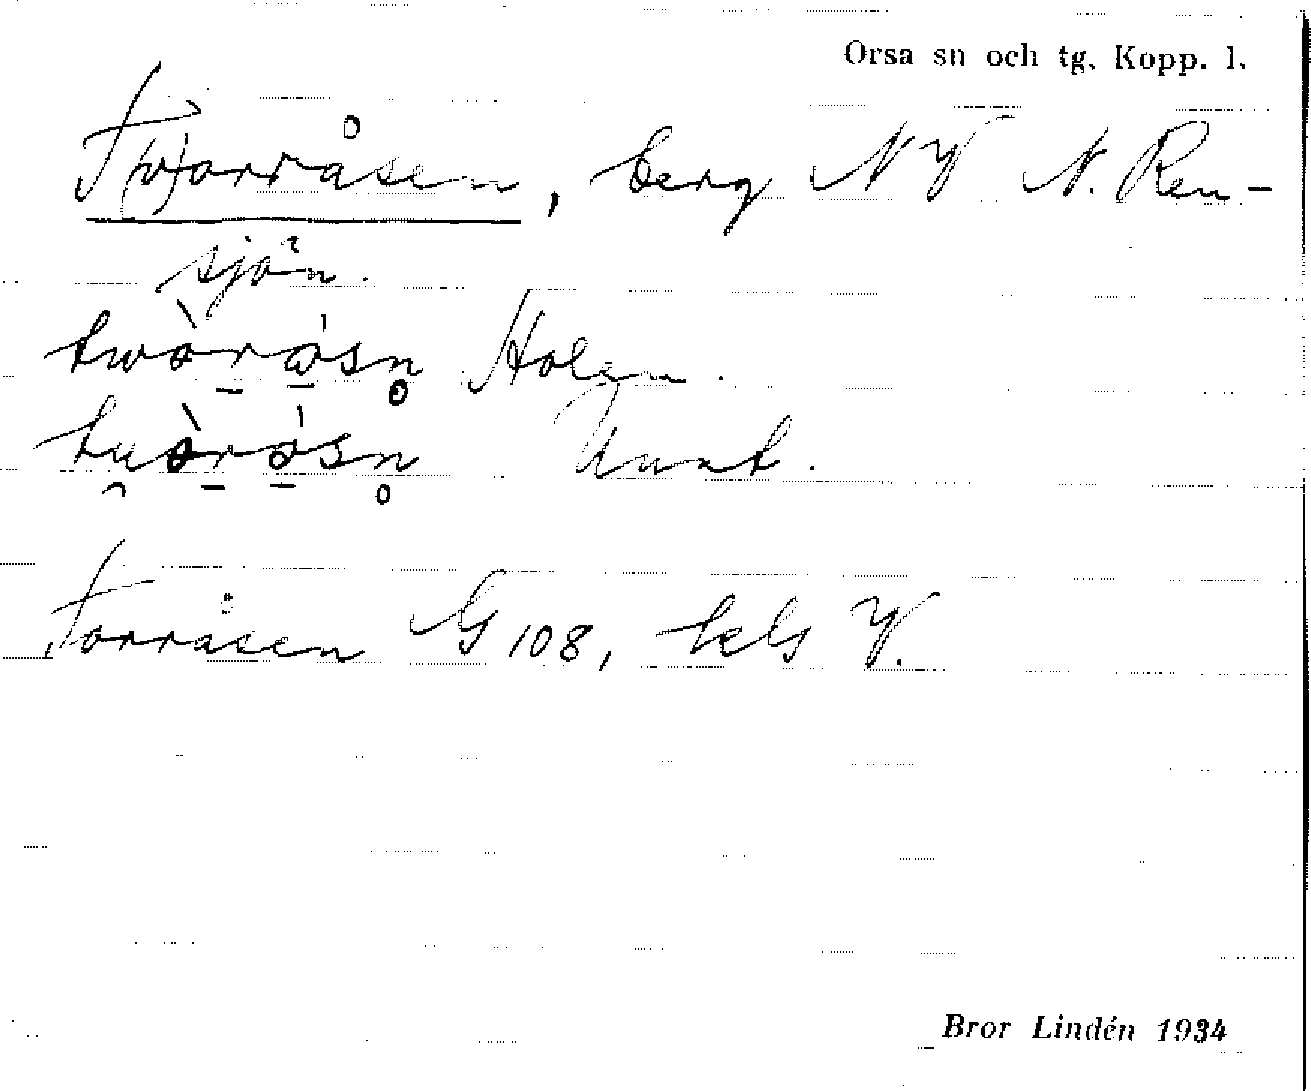 Orsa sn och tg. Kopp. l.
T(v)orråsen, berg N V N. Ren-
sjön.
twòråsn Holen.
tuòråsn
Torråsen G 108, V.
Bror Lindén 1934